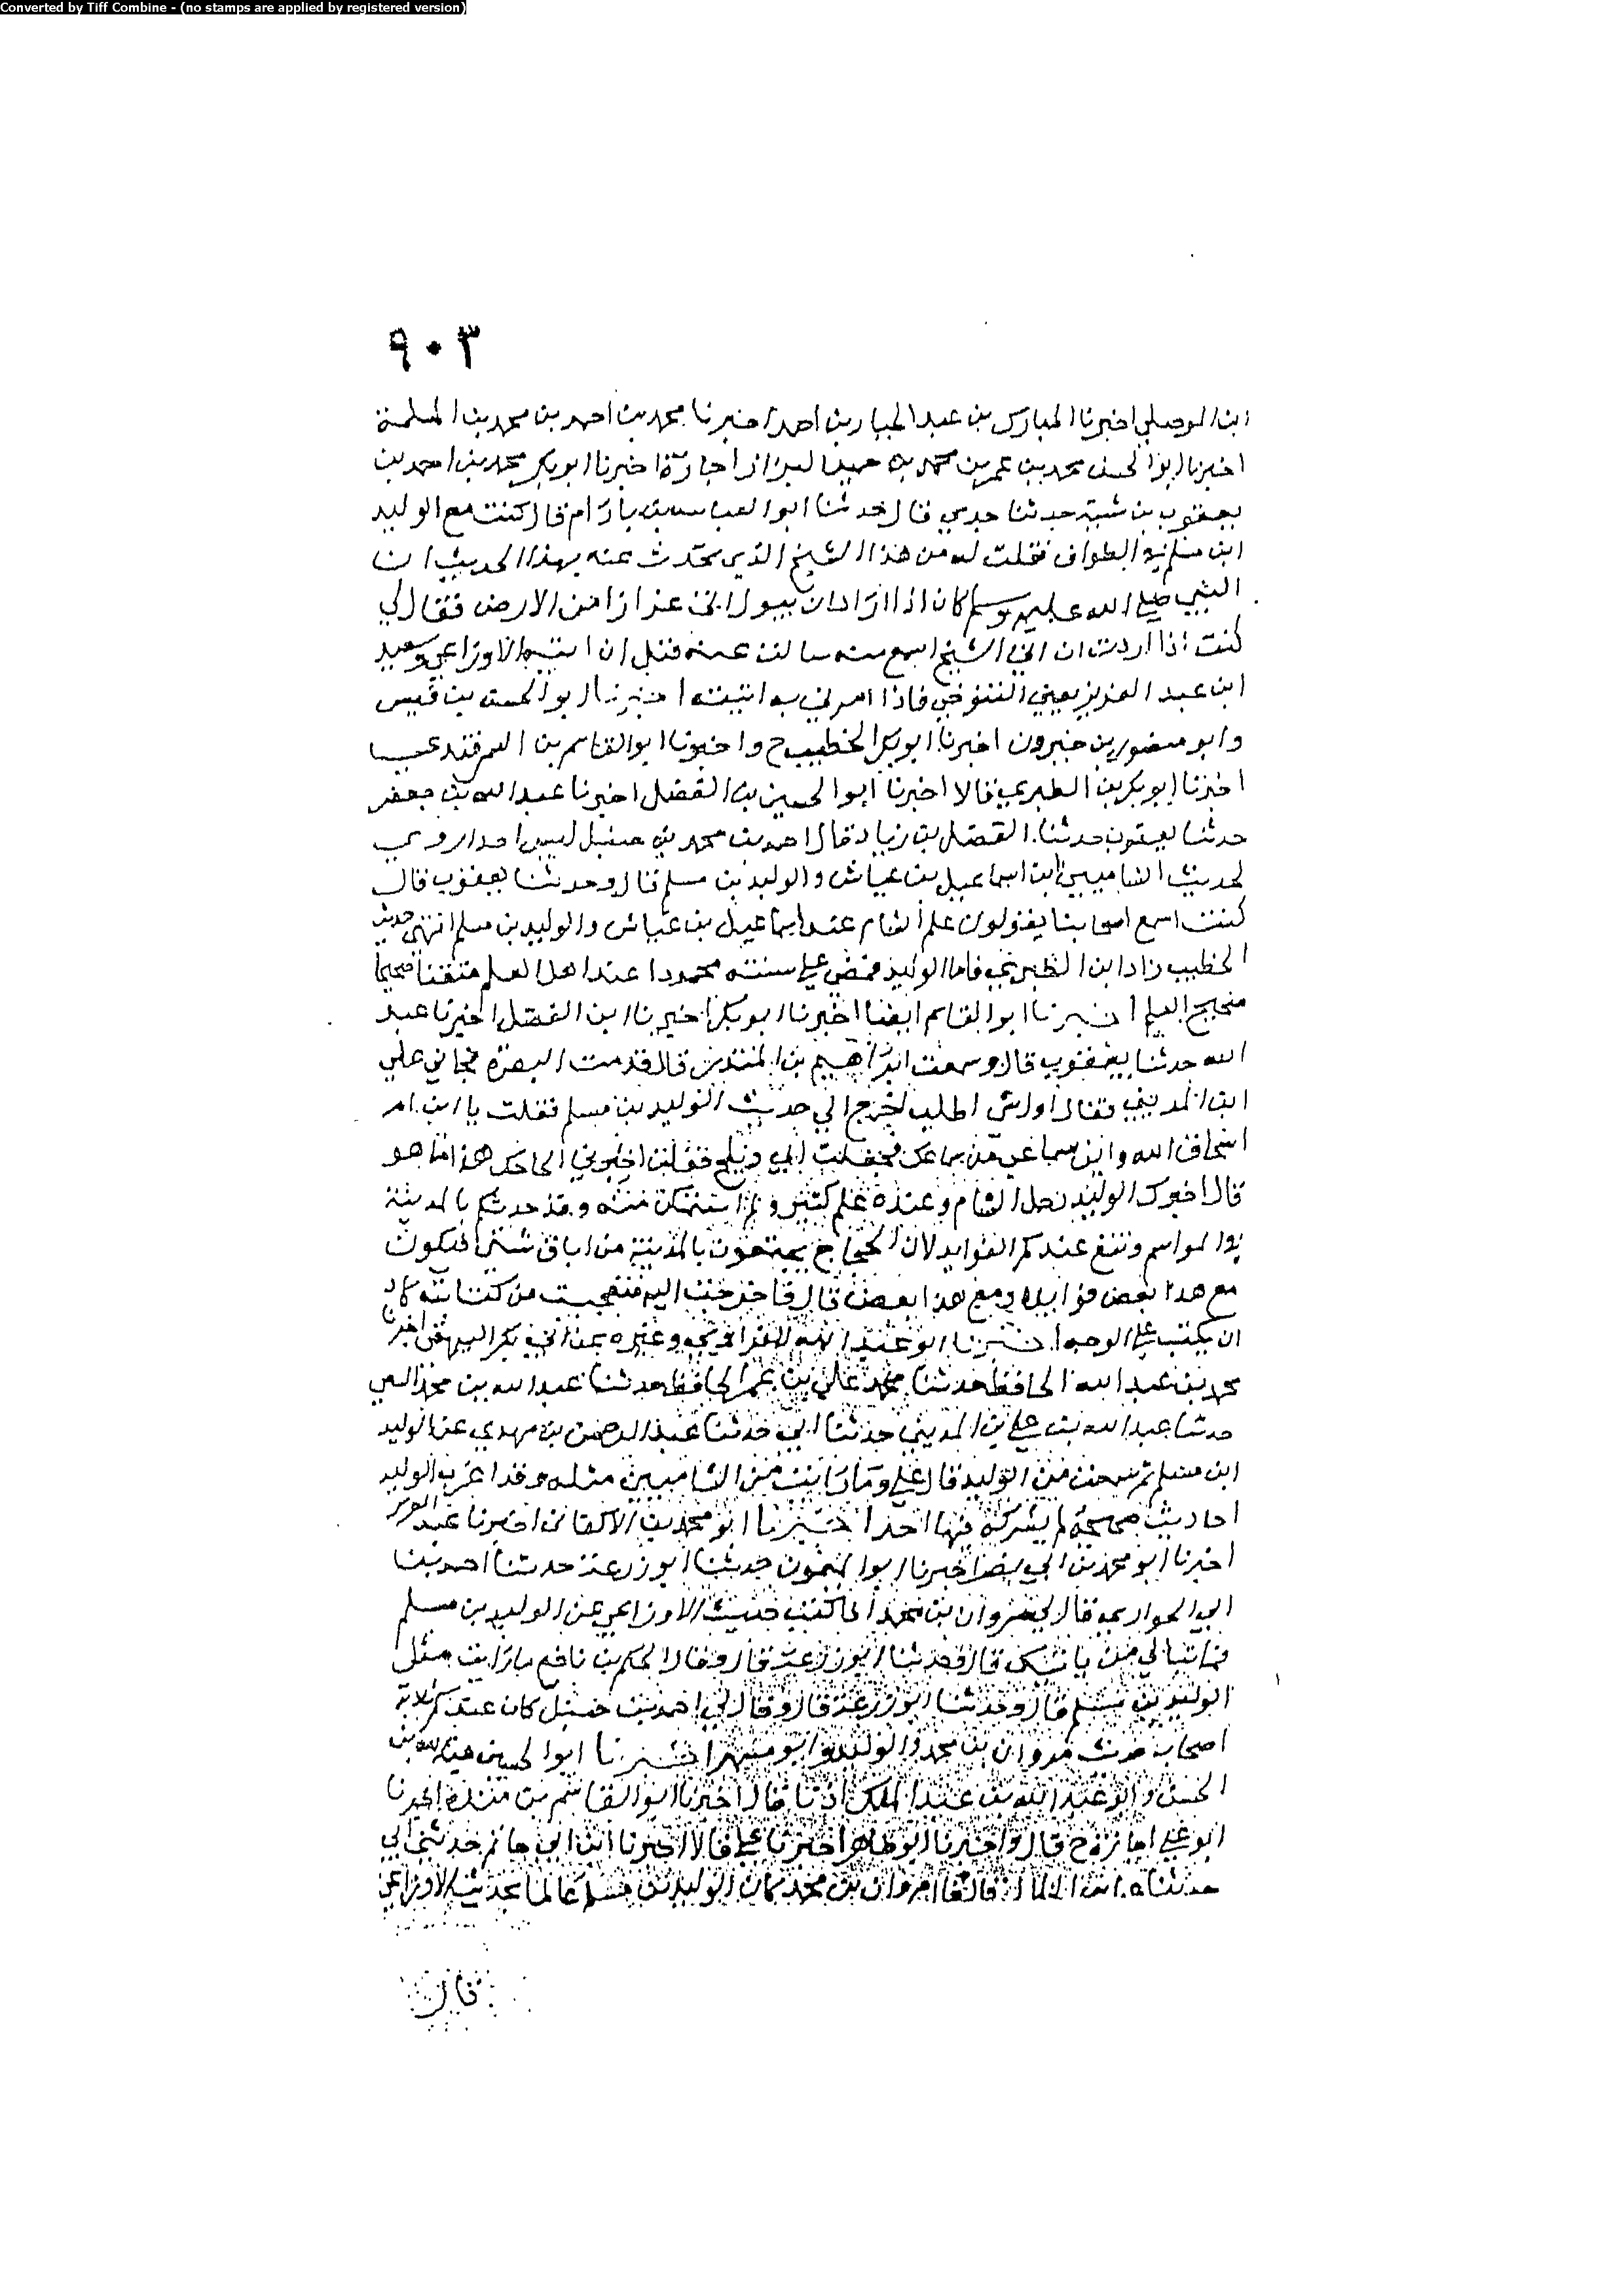 Converted by Tiff Combine - (no stamps are applied by registered version)
٩٠٣
ابن الموصلي اخبرنا المبارك بن عبد الجبار بن احمد اخبرنا محمد بن احمد بن محمد بن المسلمة
اخبرنا ابو الحسن محمد بن عمر بن محمد بن حميد البزاز اجازة اخبرنا ابو بكر محمد بن احمد بن
يعقوب بن شيبة حدثنا جدي قال حدثنا ابو العباس بن بارام قال كنت مع الوليد
ابن مسلم في الطواف فقلت له من هذا الشيخ الذي يحدث عنه بهذا الحديث ان
النبي صلى الله عليه وسلم كان اذا اراد ان يبول اتى عزازا من الارض فقال لي
كنت اذا اردت ان اتي الشيخ اسمع منه سالت عنه قبل ان اتيه الاوزاعي وسعيد
ابن عبد العزيز يعني التنوخي فاذا امرني به اتيته اخبرنا ابو الحسن بن قبيس
وابو منصور بن خيرون اخبرنا ابو بكر الخطيب ح واخبرنا ابو القاسم بن السمرقندي
اخبرنا ابو بكر بن الطبري قالا اخبرنا ابو الحسين بن الفضل اخبرنا عبد الله بن جعفر
حدثنا يعقوب حدثنا الفضل بن زياد قال احمد بن محمد بن حنبل ليس احد اروى
لحديث الشاميين من اسماعيل بن عياش والوليد بن مسلم قال وحدثنا يعقوب قال
كنت اسمع اصحابنا يقولون علم الشام عند اسماعيل بن عياش والوليد بن مسلم انتهى حديث
الخطيب زاد ابن الطبري فاما الوليد فمضى على سنته محمودا عند اهل العلم متقنا صحيحا
صحيح العلم اخبرنا ابو القاسم ايضا اخبرنا ابو بكر اخبرنا ابن الفضل اخبرنا عبد
الله حدثنا يعقوب قال وسمعت ابراهيم بن المنذر قال قدمت البصرة فجاني علي
ابن المديني فقال اول شي اطلب اخرج الي حديث الوليد بن مسلم فقلت يا ابن ام
سبحان الله واين سماعي من سماعك فجعلت ابى ويلح فقلت اخبرني الحاحك هذا ما هو
قال اخبرك الوليد رجل الشام وعنده علم كثير ولم استمكن منه وقد حدثكم بالمدينة
في المواسم وتقع عندكم الفوايد لان الحجاج يجتمعون بالمدينة من افاق شتى فيكون
مع هذا بعض فوايده ومع هذا بعض قال فاخرجت اليه فتعجب من كتابته كاد
ان يكتب على الوجه اخبرنا ابو عبد الله الفراوي وغيره عن ابي بكر البيهقي اخبرنا
محمد بن عبد الله الحافظ حدثنا محمد بن علي بن عمر الحافظ حدثنا عبد الله بن محمد
حدثنا عبد الله بن علي بن المديني حدثنا ابي حدثنا عبد الرحمن بن مهدي عن الوليد
ابن مسلم ثم سمعت من الوليد قال علي وما رايت من الشاميين مثله وقد اغرب الوليد
احاديث صحيحة لم يشركه فيها احد اخبرنا ابو محمد بن الاكفاني اخبرنا عبد العزيز
اخبرنا ابو محمد بن ابي نصر اخبرنا ابو الميمون حدثنا ابو زرعة حدثنا احمد بن
ابي الحواري قال لي مروان بن محمد اذا كتبت حديث الاوزاعي عن الوليد بن مسلم
فما تبالي من فاتك قال وحدثنا ابو زرعة قال وقال الحكم بن نافع ما رايت مثل
الوليد بن مسلم قال وحدثنا ابو زرعة قال وقال لي احمد بن حنبل كان عندكم ثلاثة
اصحاب حديث مروان بن محمد والوليد وابو مسهر اخبرنا ابو الحسين هبة الله بن
الحسن وابو عبد الله بن عبد الملك اذنا قالا اخبرنا ابو القاسم بن منده اخبرنا
ابو علي اجازة ح قال واخبرنا ابو طاهر اخبرنا علي قالا اخبرنا ابن ابي حاتم حدثني ابي
حدثنا قال مروان بن محمد كان الوليد بن مسلم عالما بحديث الاوزاعي
قال